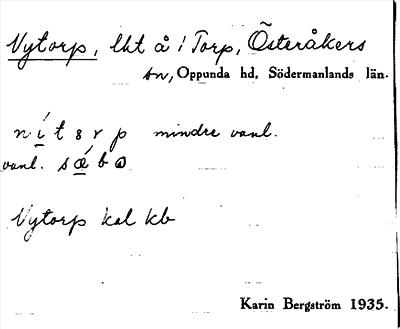 Nytorp, lht å i Torp, Österåkers
sn, Oppunda hd, Södermanlands län.
nít s r p mindre vanl.
vanl. sǽbo
Nytorp kal kb
Karin Bergström 1935.